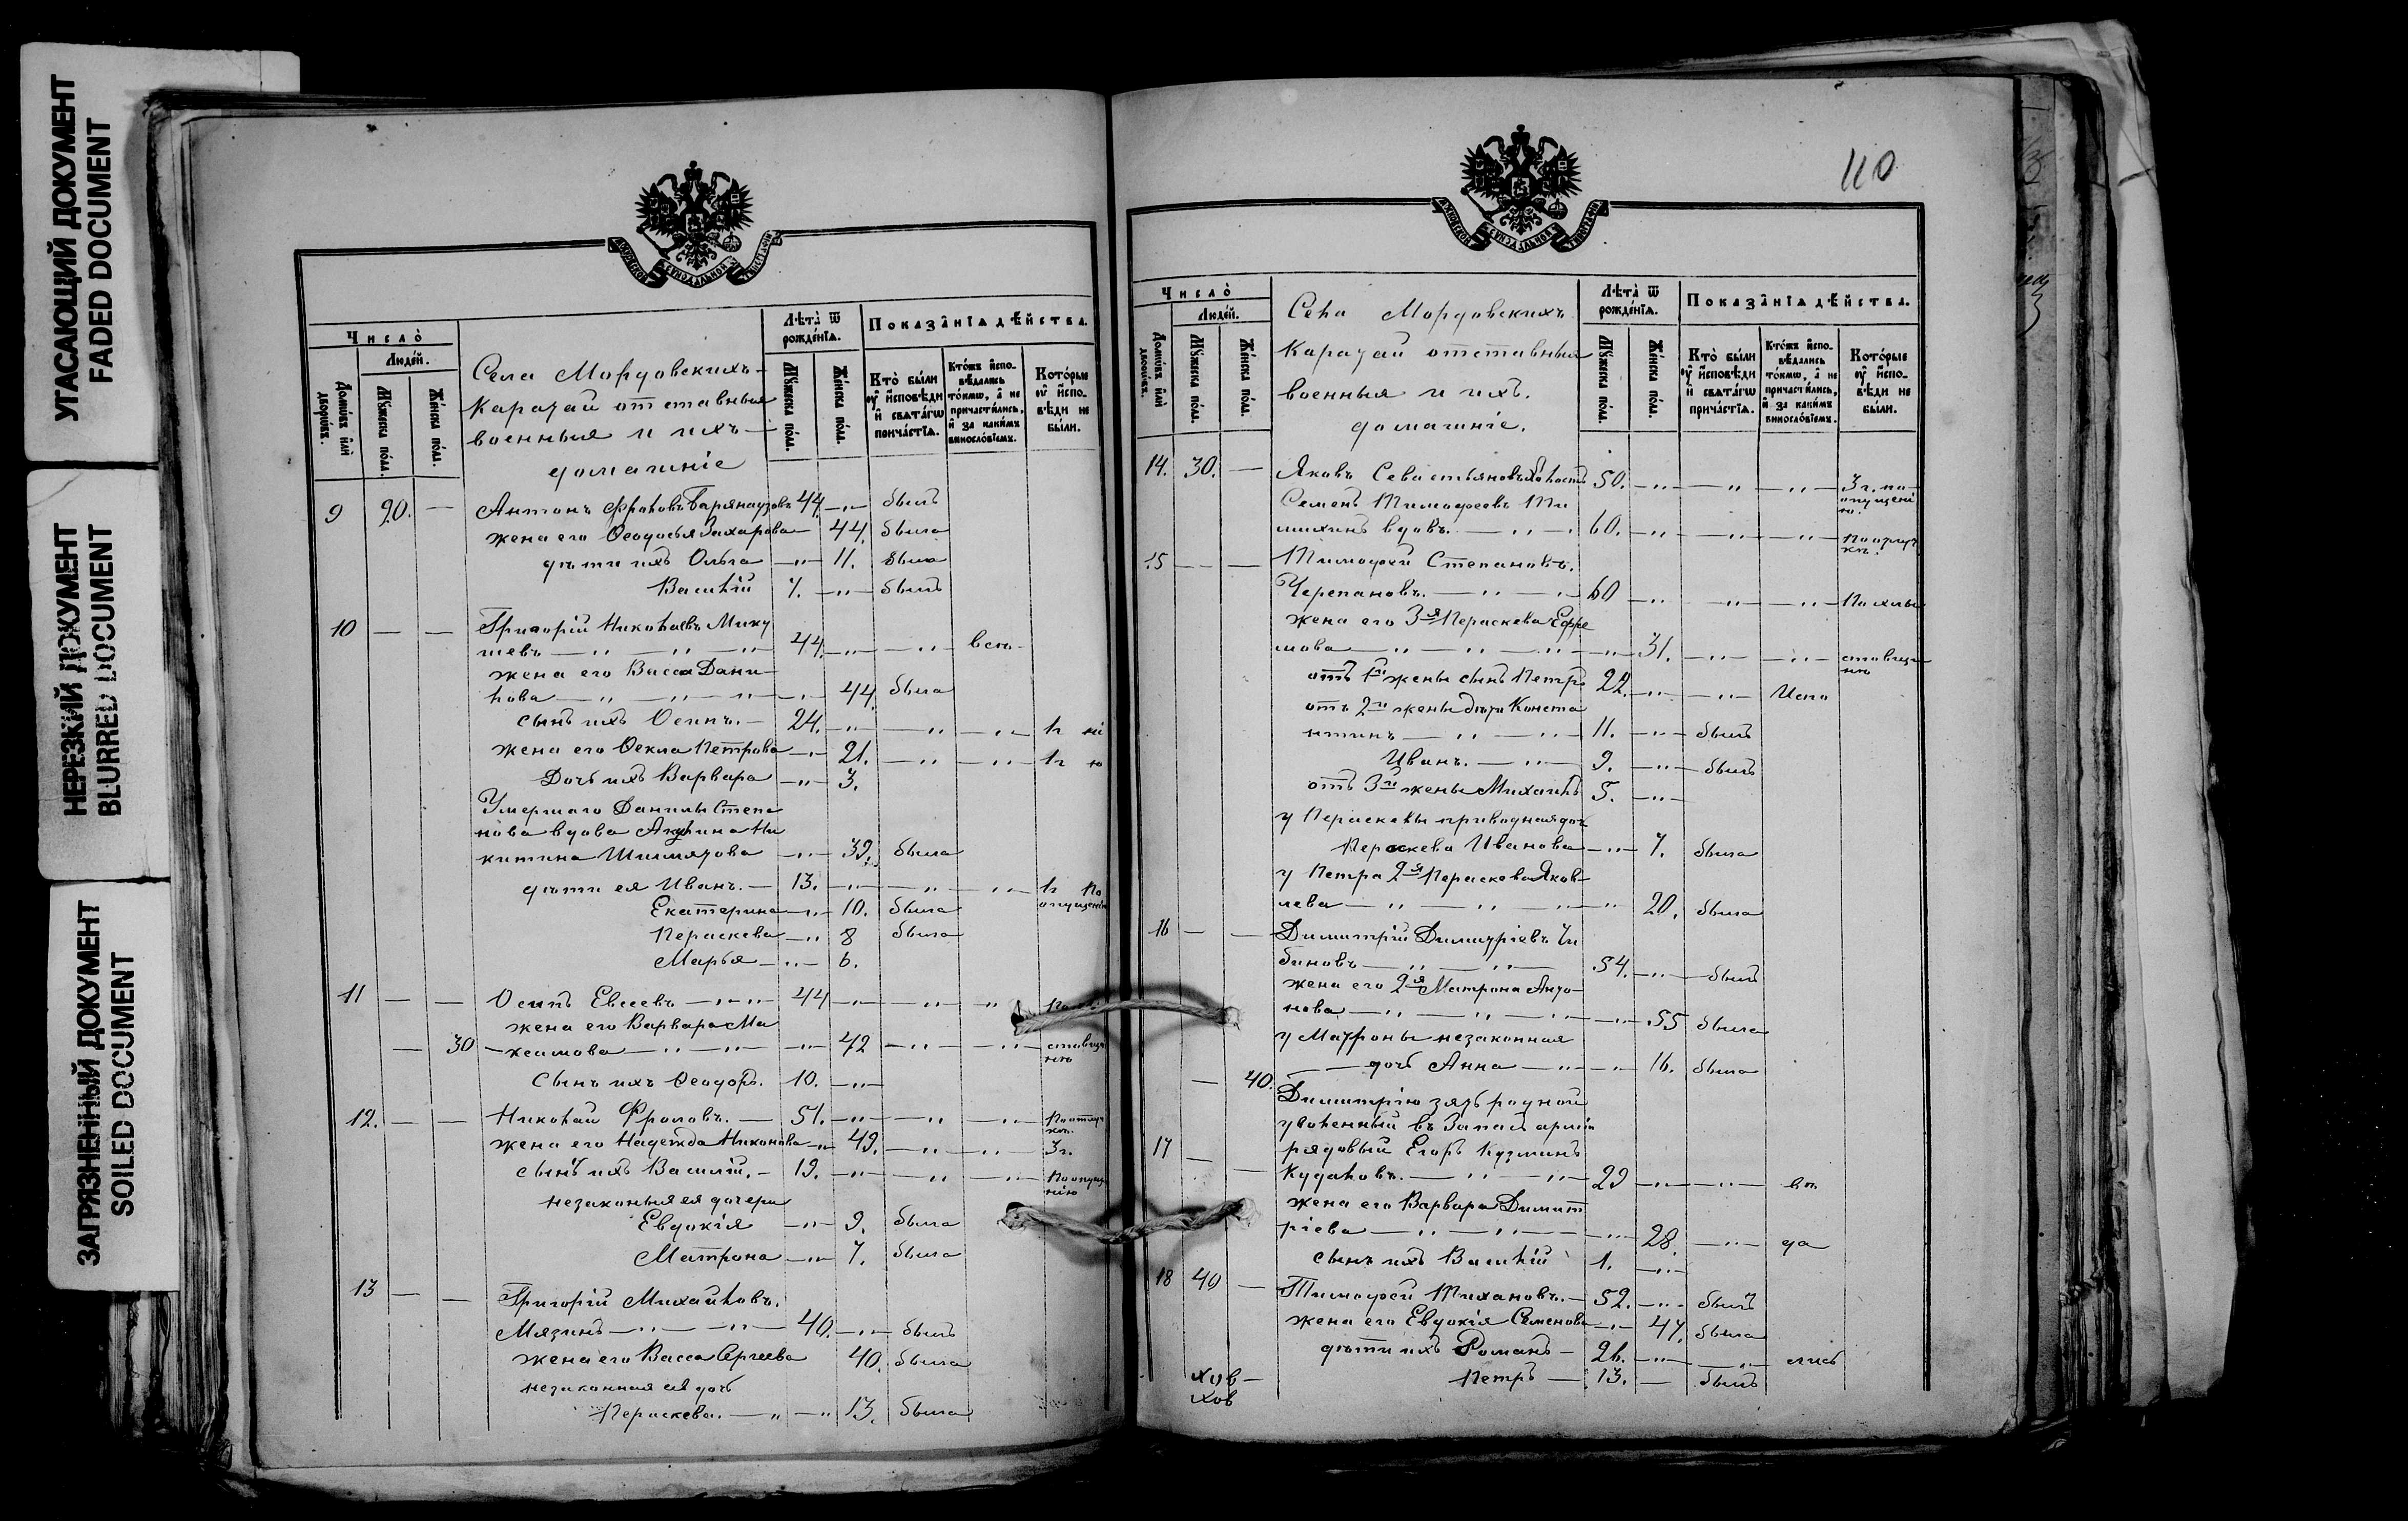 УГАСАЮЩИЙ ДОКУМЕНТ
FADED DOCUMENT
НЕРЕЗКИЙ ДОКУМЕНТ
BLURRED DOCUMENT
ЗАГРЯЗНЕННЫЙ ДОКУМЕНТ
SOILED DOCUMENT
Число̀
Людей.
Домѡвъ и҆лѝ дворѡвъ.
Мꙋ́жеска по́ла.
Же́нска по́ла.
Села Мордовскихъ
Каратай отставныя
военныя и ихъ
домашніе
Лѣта̀ ѿ рожде́нїѧ.
Мꙋ́жеска по́ла.
Же́нска по́ла.
Показа́нїѧ дѣ́йства.
Кто̀ бы́ли
ᲂу҆ и҆сповѣди
и҆ свѧта́гѡ
прича́стїѧ.
Кто́жъ и҆спо-
вѣдались
то́кмѡ, а҆ не
причасти́лись,
и҆ за каки́мъ
винословїемъ.
Кото́рые
ᲂу҆ и҆спо-
вѣди не
бы́ли.
9 20. — Антонъ Фроловъ 44. был
жена его Ѳеодосья Захарова 44. была
дѣти ихъ Ольга 11. была
Василій 7. былъ
10 — — Григорій Николаевъ Мику
шевъ 44.
жена его Васса Дани
лова 44. была
сынъ ихъ Осипъ. 24. 1г
жена его Ѳекла Петрова 21. 1г
Дочь ихъ Варвара 3.
Умершаго Данилы Степа
нова вдова Акулина Ни
китина 39. была
дѣти ея Иванъ. 13. 1г по
Екатерина 10. была опущенію
Пераскева 8 была
Марья 6.
11 — — Осипъ Евсеевъ 44
жена его Варвара Ма
— 30 ксимова 42
Сынъ ихъ Ѳеодоръ. 10.
12. — — Николай Фроловъ. 51.
жена его Надежда Никонова 49. 3г.
сынъ ихъ Василій. 19.
незаконныя ея дочери
Евдокія 9. была
Матрона 7. была
13 — — Григорій Михайловъ.
Мязинъ 40. былъ
жена его Васса Сергеева 40. была
незаконная ея дочь
Пераскева. 13. была
110
Число̀
Людей.
Домѡвъ и҆лѝ дворѡвъ.
Мꙋ́жеска по́ла.
Же́нска по́ла.
Села Мордовскихъ
Каратай отставныя
военныя и ихъ
домашніе.
Лѣта̀ ѿ рожде́нїѧ.
Мꙋ́жеска по́ла.
Же́нска по́ла.
Показа́нїѧ дѣ́йства.
Кто̀ бы́ли
ᲂу҆ и҆сповѣди
и҆ свѧта́гѡ
прича́стїѧ.
Кто́жъ и҆спо-
вѣдались
то́кмѡ, а҆ не
причасти́лись,
и҆ за каки́мъ
винословїемъ.
Кото́рые
ᲂу҆ и҆спо-
вѣди не
бы́ли.
14. 30. — Яковъ Севастьяновъ 50. 3г. по
Семенъ Тимофеевъ Ти опущені
шихинъ вдовъ. 60. ю.
15 — — Тимофей Степановъ.
Черепановъ. 60
жена его 3я Пераскева Ефре
мова 31.
отъ 1й жены сынъ Петръ 22. Испо
отъ 2й жены дѣти Конста
нтинъ 11. былъ
Иванъ. 9. былъ
отъ 3й жены Михаилъ 5.
у Пераскевы приводная доч
Пераскева Иванова 7. была
у Петра 2я Пераскева Яков-
лева 20. была
16 — — Димитрій Димитріевъ
биновъ 54. былъ
жена его 2я Матрона Анто-
нова 55 была
у Матроны незаконная
— 40. дочь Анна 16. была
Димитрію зять родной
уволенный въ Запасъ арміи
17 — — рядовый Егоръ Кузминъ
Кудаковъ. 29 вѣ
жена его Варвара Димит
ріева 28. да
сынъ ихъ Василій 1.
18 40 — Тимофей Тихановъ. 52. былъ
жена его Евдокія Семенова 47. была
дѣти ихъ Романъ 26. лись
Петръ 13. былъ